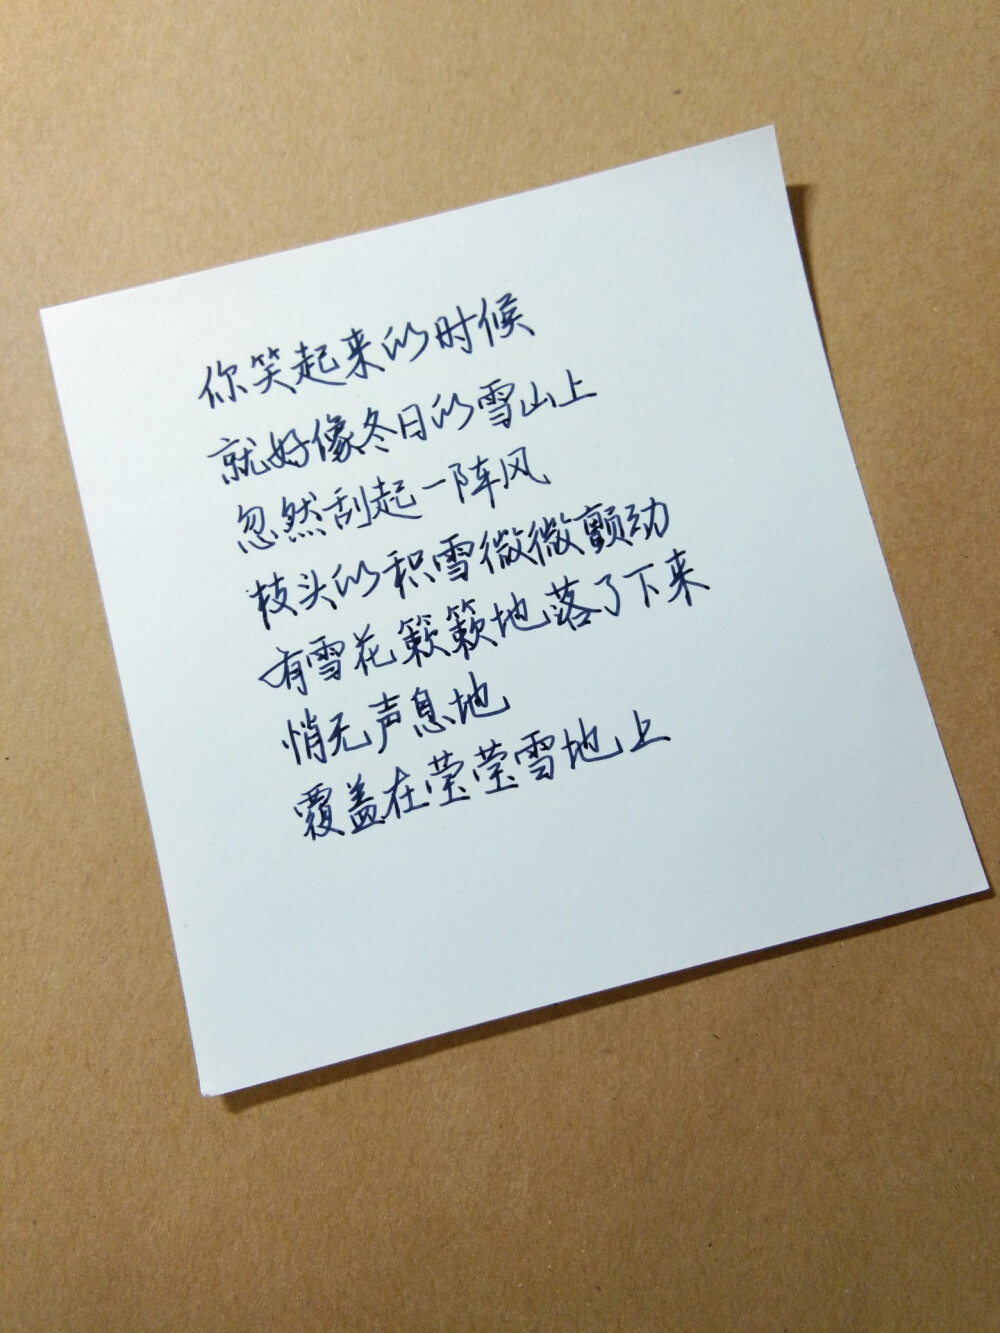 你笑起来的时候
就好像冬日的雪山上
忽然刮起一阵风
枝头的积雪微微颤动
有雪花簌簌地落了下来
悄无声息地
覆盖在莹莹雪地上